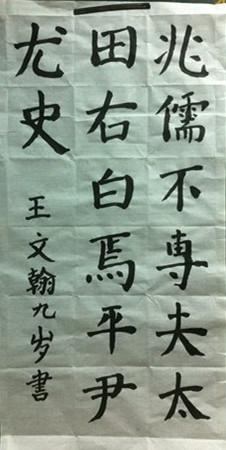 兆儒不専夫太
田右白焉平尹
尤史
王文翰九岁書